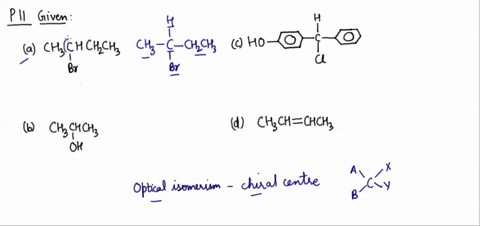 P11 Given:
(a) CH₃CHCH₂CH₃
Br
H
CH₃-C-CH₂CH₃
Br
(c) HO
H
C
Cl
(b) CH₃CHCH₃
OH
(d) CH₃CH=CHCH₃
Optical isomerism - chiral centre
A X
C
B Y